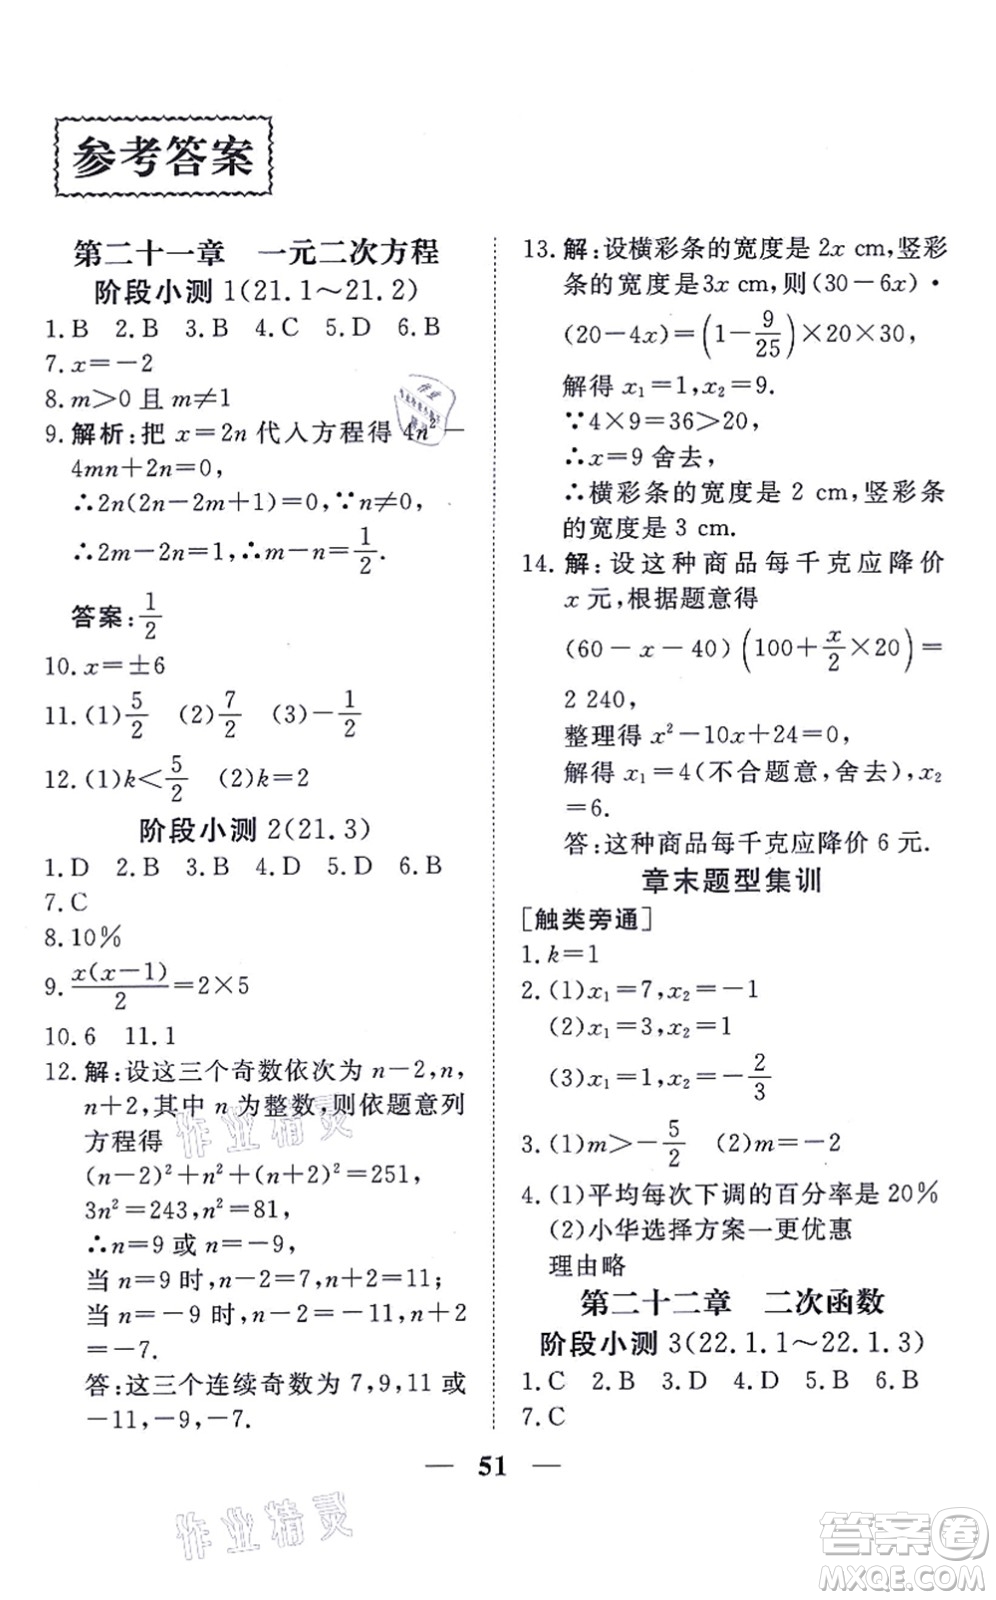 参考答案
第二十一章　一元二次方程
阶段小测 1(21.1～21.2)
1.B 2.B 3.B 4.C 5.D 6.B
7.x=-2
8.m>0 且 m≠1
9.解析:把 x=2n 代入方程得 4n²-
4mn+2n=0,
∴2n(2n-2m+1)=0,∵n≠0,
∴2m-2n=1,∴m-n=1/2.
答案:1/2
10.x=±6
11.(1)5/2 (2)7/2 (3)-1/2
12.(1)k<5/2 (2)k=2
阶段小测 2(21.3)
1.D 2.B 3.A 4.D 5.D 6.B
7.C
8.10%
9.x(x-1)/2=2×5
10.6 11.1
12.解:设这三个奇数依次为 n-2,n,
n+2,其中 n 为整数,则依题意列
方程得
(n-2)²+n²+(n+2)²=251,
3n²=243,n²=81,
∴n=9 或 n=-9.
当 n=9 时,n-2=7,n+2=11;
当 n=-9 时,n-2=-11,n+2
=-7.
答:这三个连续奇数为 7,9,11 或
-11,-9,-7.
13.解:设横彩条的宽度是 2x cm,竖彩
条的宽度是3x cm,则(30-6x)·
(20-4x)=(1-9/25)×20×30,
解得 x₁=1,x₂=9.
∵4×9=36>20,
∴x=9 舍去,
∴横彩条的宽度是 2 cm,竖彩条
的宽度是 3 cm.
14.解:设这种商品每千克应降价
x 元,根据题意得
(60-x-40)(100+x/2×20)=
2 240,
整理得 x²-10x+24=0,
解得 x₁=4(不合题意,舍去),x₂
=6.
答:这种商品每千克应降价 6 元.
章末题型集训
[触类旁通]
1.k=1
2.(1)x₁=7,x₂=-1
(2)x₁=3,x₂=1
(3)x₁=1,x₂=-2/3
3.(1)m>-5/2 (2)m=-2
4.(1)平均每次下调的百分率是 20%
(2)小华选择方案一更优惠
理由略
第二十二章　二次函数
阶段小测 3(22.1.1～22.1.3)
1.C 2.B 3.D 4.D 5.B 6.B
7.C
— 51 —
作业精灵
作业精灵
答案卷
MXQE.COM